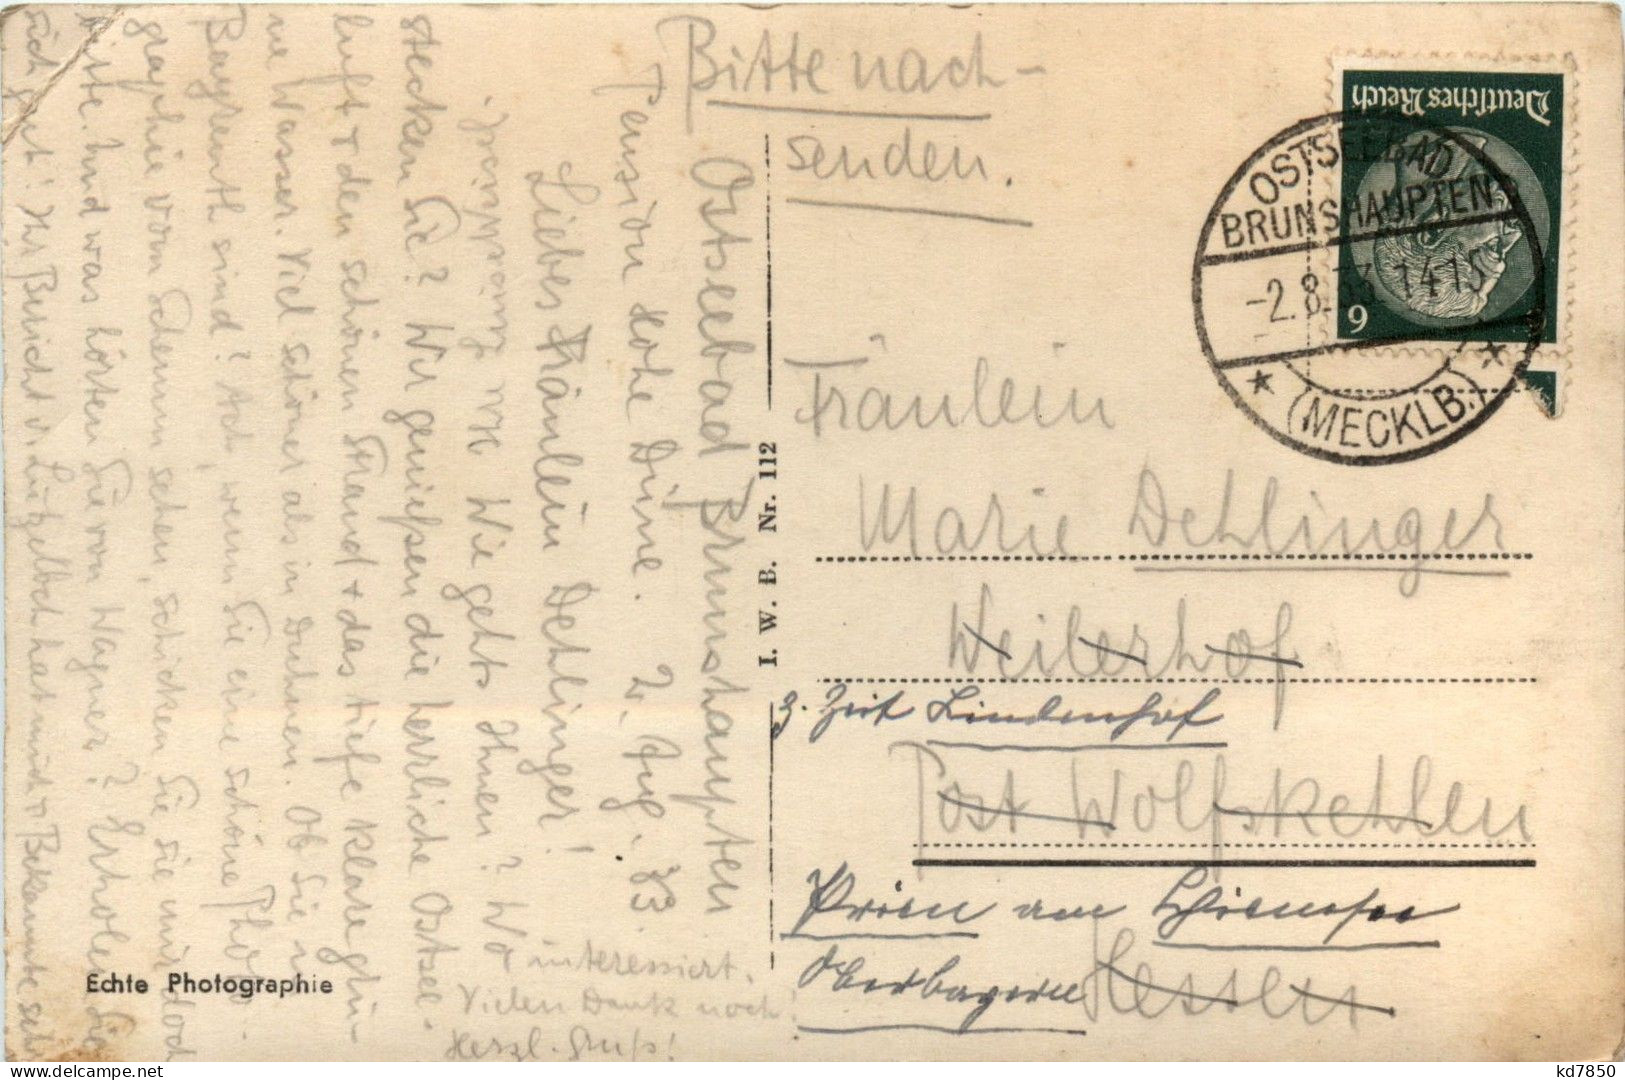 Bitte nach-
senden.
Deutsches Reich
6
OSTSEEBAD
BRUNSHAUPTEN
-2.8.33 1415
(MECKLB.)
Fräulein
Marie Dehlinger
Weilerhof
z. Zeit Lindenhof
Post Wolfskehlen
Prien am Chiemsee
Oberbayern
Hessen
I. W. B. Nr. 112
Echte Photographie
Ostseebad Brunshaupten
Pension Hohe Düne. 2. Aug. 33
Liebes Fräulein Dehlinger!
Wie geht's Ihnen? Wo
stecken Sie? Wir genießen die herrliche Ostsee-
luft + den schönen Strand + das tiefe klare grü-
ne Wasser. Viel schöner als in Duhnen. Ob Sie in
Bayreuth sind? Ach, wenn Sie eine schöne Photo-
graphie vom Schemm sehen, schicken Sie sie mir doch
bitte. Und was hörten Sie von Wagner? Erholen Sie
sich gut! Ihr Bericht v. Lützelbach hat mich + Bekannte sehr
interessiert.
Vielen Dank noch!
Herzl. Gruß!
kd7850